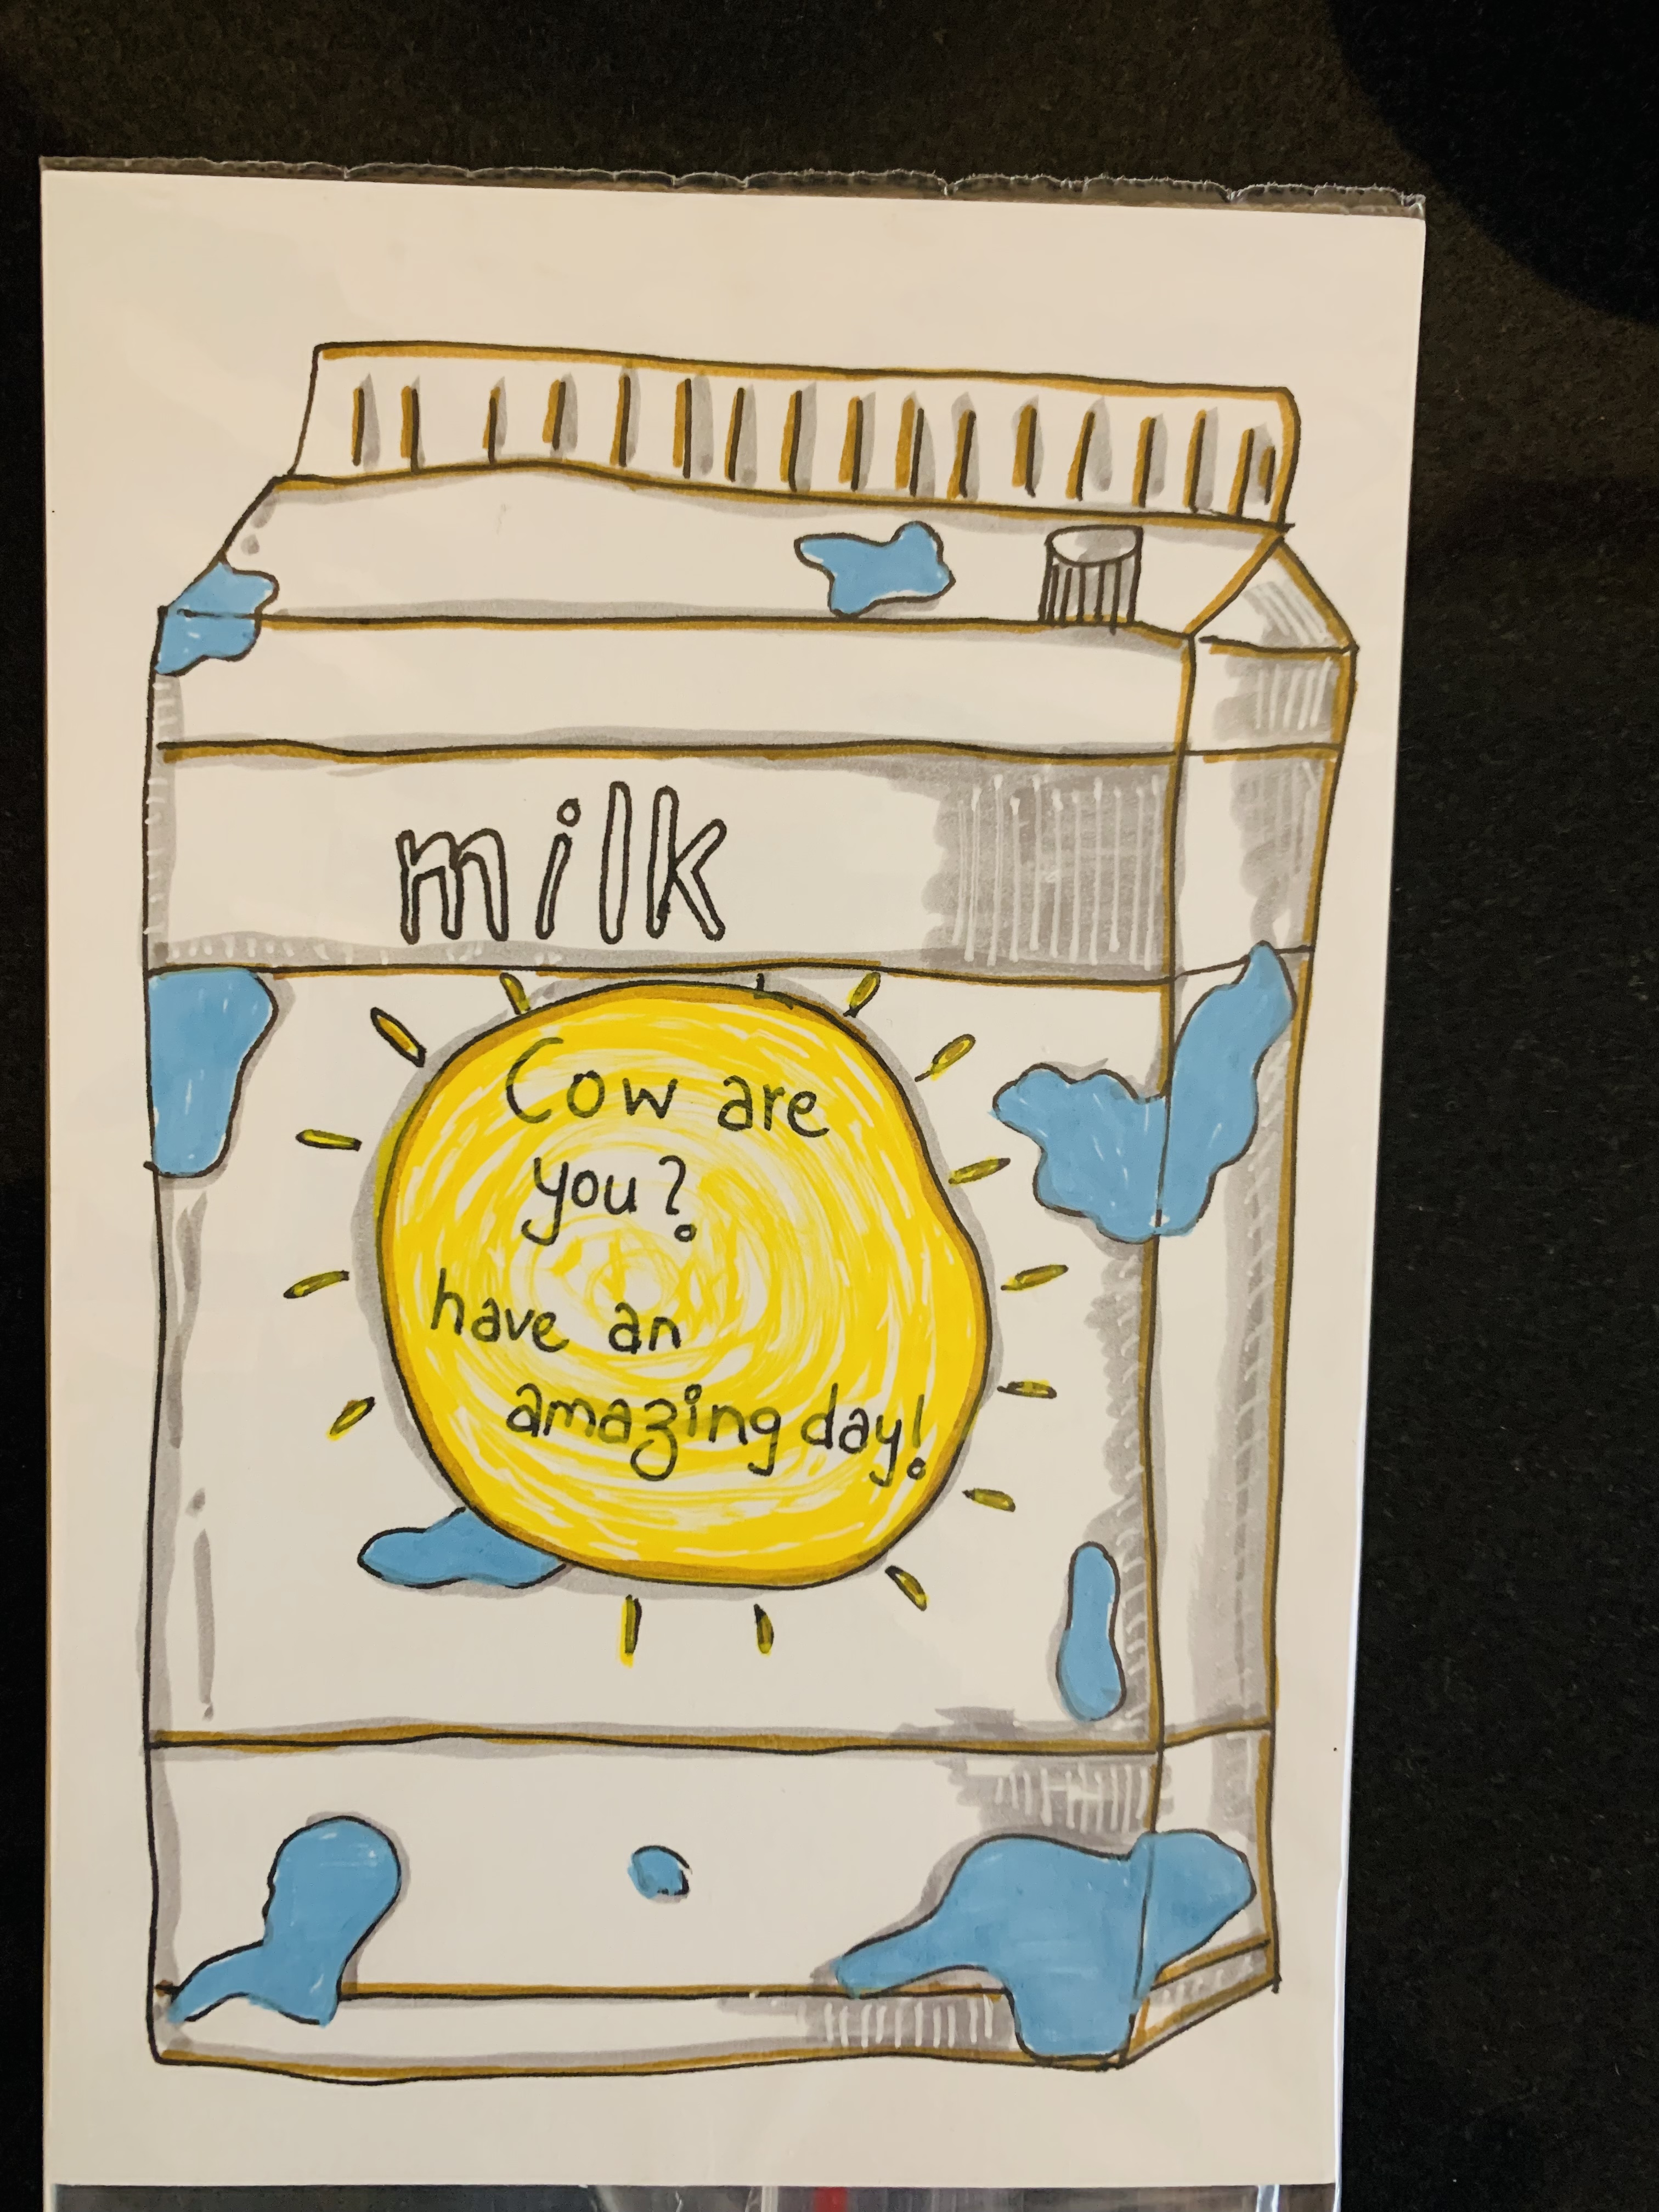 milk
Cow are
you?
have an
amazing day!